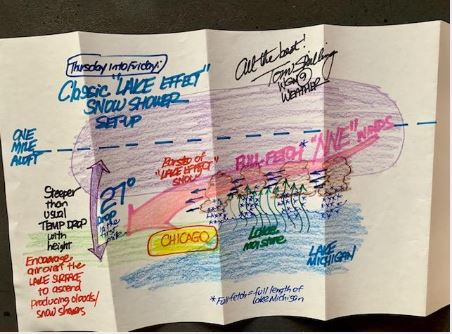 Thursday into Friday:
Classic "LAKE EFFECT"
SNOW SHOWER
SET-UP
All the best!
Tom Skilling
WGN9
WEATHER
ONE
MILE
ALOFT
FULL-FETCH* "NNE" WINDS
Bursts of
"LAKE EFFECT"
SNOW
Steeper
than
usual
TEMP DROP
with
height
27°
DROP
CHICAGO
LAKE
moisture
LAKE
MICHIGAN
Encourages
air over the
LAKE SURFACE
to ascend
producing clouds/
snow showers
*Full fetch = full length of
Lake Michigan